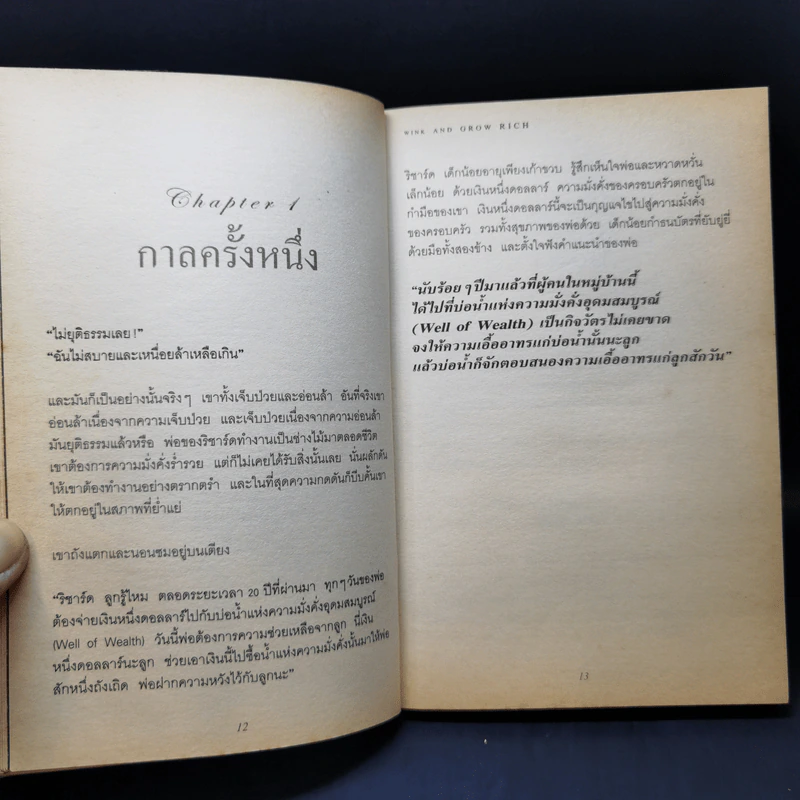 Chapter 1
กาลครั้งหนึ่ง
"ไม่ยุติธรรมเลย !"
"ฉันไม่สบายและเหนื่อยล้าเหลือเกิน"
และมันก็เป็นอย่างนั้นจริงๆ เขาทั้งเจ็บป่วยและอ่อนล้า อันที่จริงเขา
อ่อนล้าเนื่องจากความเจ็บป่วย และเจ็บป่วยเนื่องจากความอ่อนล้า
มันยุติธรรมแล้วหรือ พ่อของริชาร์ดทำงานเป็นช่างไม้มาตลอดชีวิต
เขาต้องการความมั่งคั่งร่ำรวย แต่ก็ไม่เคยได้รับสิ่งนั้นเลย นั่นผลักดัน
ให้เขาต้องทำงานอย่างตรากตรำ และในที่สุดความกดดันก็บีบคั้นเขา
ให้ตกอยู่ในสภาพที่ย่ำแย่
เขาถังแตกและนอนซมอยู่บนเตียง
"ริชาร์ด ลูกรู้ไหม ตลอดระยะเวลา 20 ปีที่ผ่านมา ทุกๆวันของพ่อ
ต้องจ่ายเงินหนึ่งดอลลาร์ไปกับบ่อน้ำแห่งความมั่งคั่งอุดมสมบูรณ์
(Well of Wealth) วันนี้พ่อต้องการความช่วยเหลือจากลูก นี่เงิน
หนึ่งดอลลาร์นะลูก ช่วยเอาเงินนี้ไปซื้อน้ำแห่งความมั่งคั่งนั้นมาให้พ่อ
สักหนึ่งถังเถิด พ่อฝากความหวังไว้กับลูกนะ"
12
WINK AND GROW RICH
ริชาร์ด เด็กน้อยอายุเพียงเก้าขวบ รู้สึกเห็นใจพ่อและหวาดหวั่น
เล็กน้อย ด้วยเงินหนึ่งดอลลาร์ ความมั่งคั่งของครอบครัวตกอยู่ใน
กำมือของเขา เงินหนึ่งดอลลาร์นี้จะเป็นกุญแจไขไปสู่ความมั่งคั่ง
ของครอบครัว รวมทั้งสุขภาพของพ่อด้วย เด็กน้อยกำธนบัตรที่ยับยู่ยี่
ด้วยมือทั้งสองข้าง และตั้งใจฟังคำแนะนำของพ่อ
"นับร้อย ๆ ปีมาแล้วที่ผู้คนในหมู่บ้านนี้
ได้ไปที่บ่อน้ำแห่งความมั่งคั่งอุดมสมบูรณ์
(Well of Wealth) เป็นกิจวัตรไม่เคยขาด
จงให้ความเอื้ออาทรแก่บ่อน้ำนั้นนะลูก
แล้วบ่อน้ำก็จักตอบสนองความเอื้ออาทรแก่ลูกสักวัน"
13